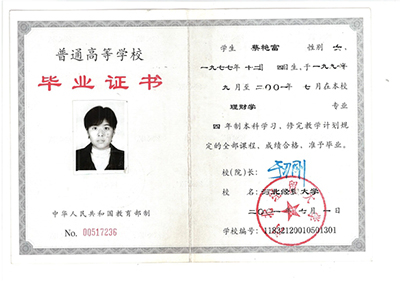 普通高等学校
毕业证书
中华人民共和国教育部制
No. 00517236
学生 蔡艳富 性别 女，
一九七七年十二月四日生，于一九九
九月至二〇〇一年七月在本校
理财学 专业
四年制本科学习，修完教学计划规
定的全部课程，成绩合格，准予毕业。
校(院)长：
校 名：河北经贸大学
二〇〇一年七月一日
学校编号：11832120010501301